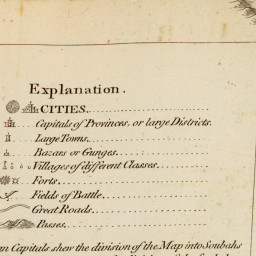 Explanation.
CITIES.
Capitals of Provinces, or large Districts.
Large Towns.
Bazars or Gunges.
Villages of different Classes.
Forts.
Fields of Battle.
Great Roads.
Passes.
Capitals shew the division of the Map into Soubahs